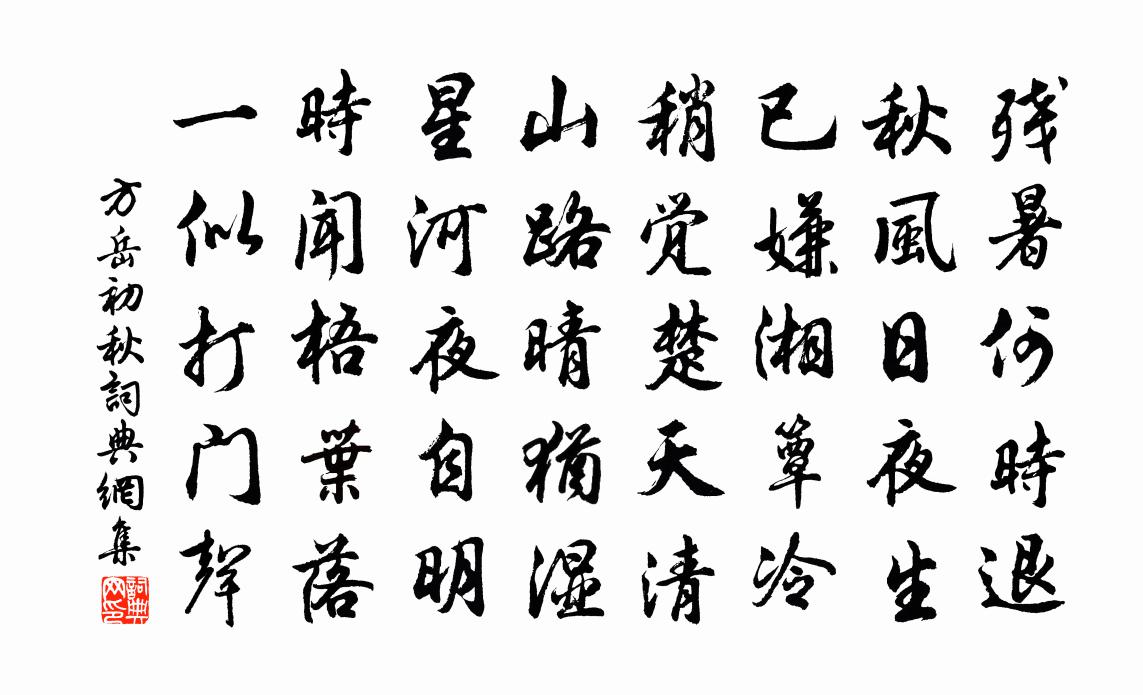 残暑何時退
秋風日夜生
已嫌湘簟冷
稍覚楚天清
山路晴猶湿
星河夜自明
時聞梧葉落
一似打门聲
方岳初秋詞典網集
詞典网印